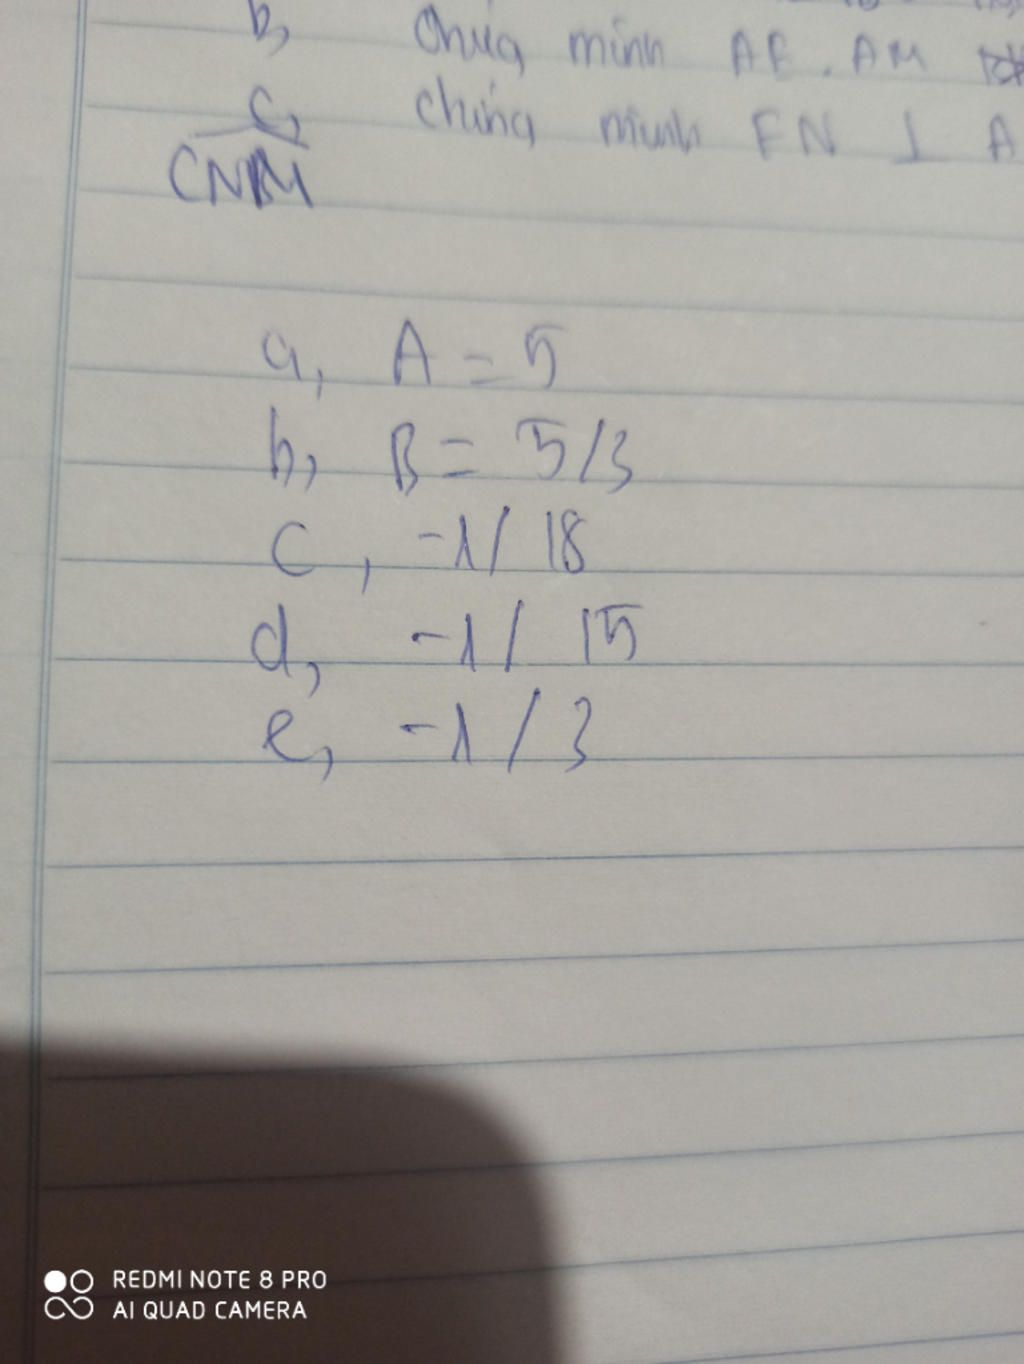 b,
Chứng minh AE . AM
c, chứng minh FN ⊥ A
CNM
a, A = 5
b, B = 5/3
c, -1/ 18
d, -1/ 15
e, -1/3
REDMI NOTE 8 PRO
AI QUAD CAMERA